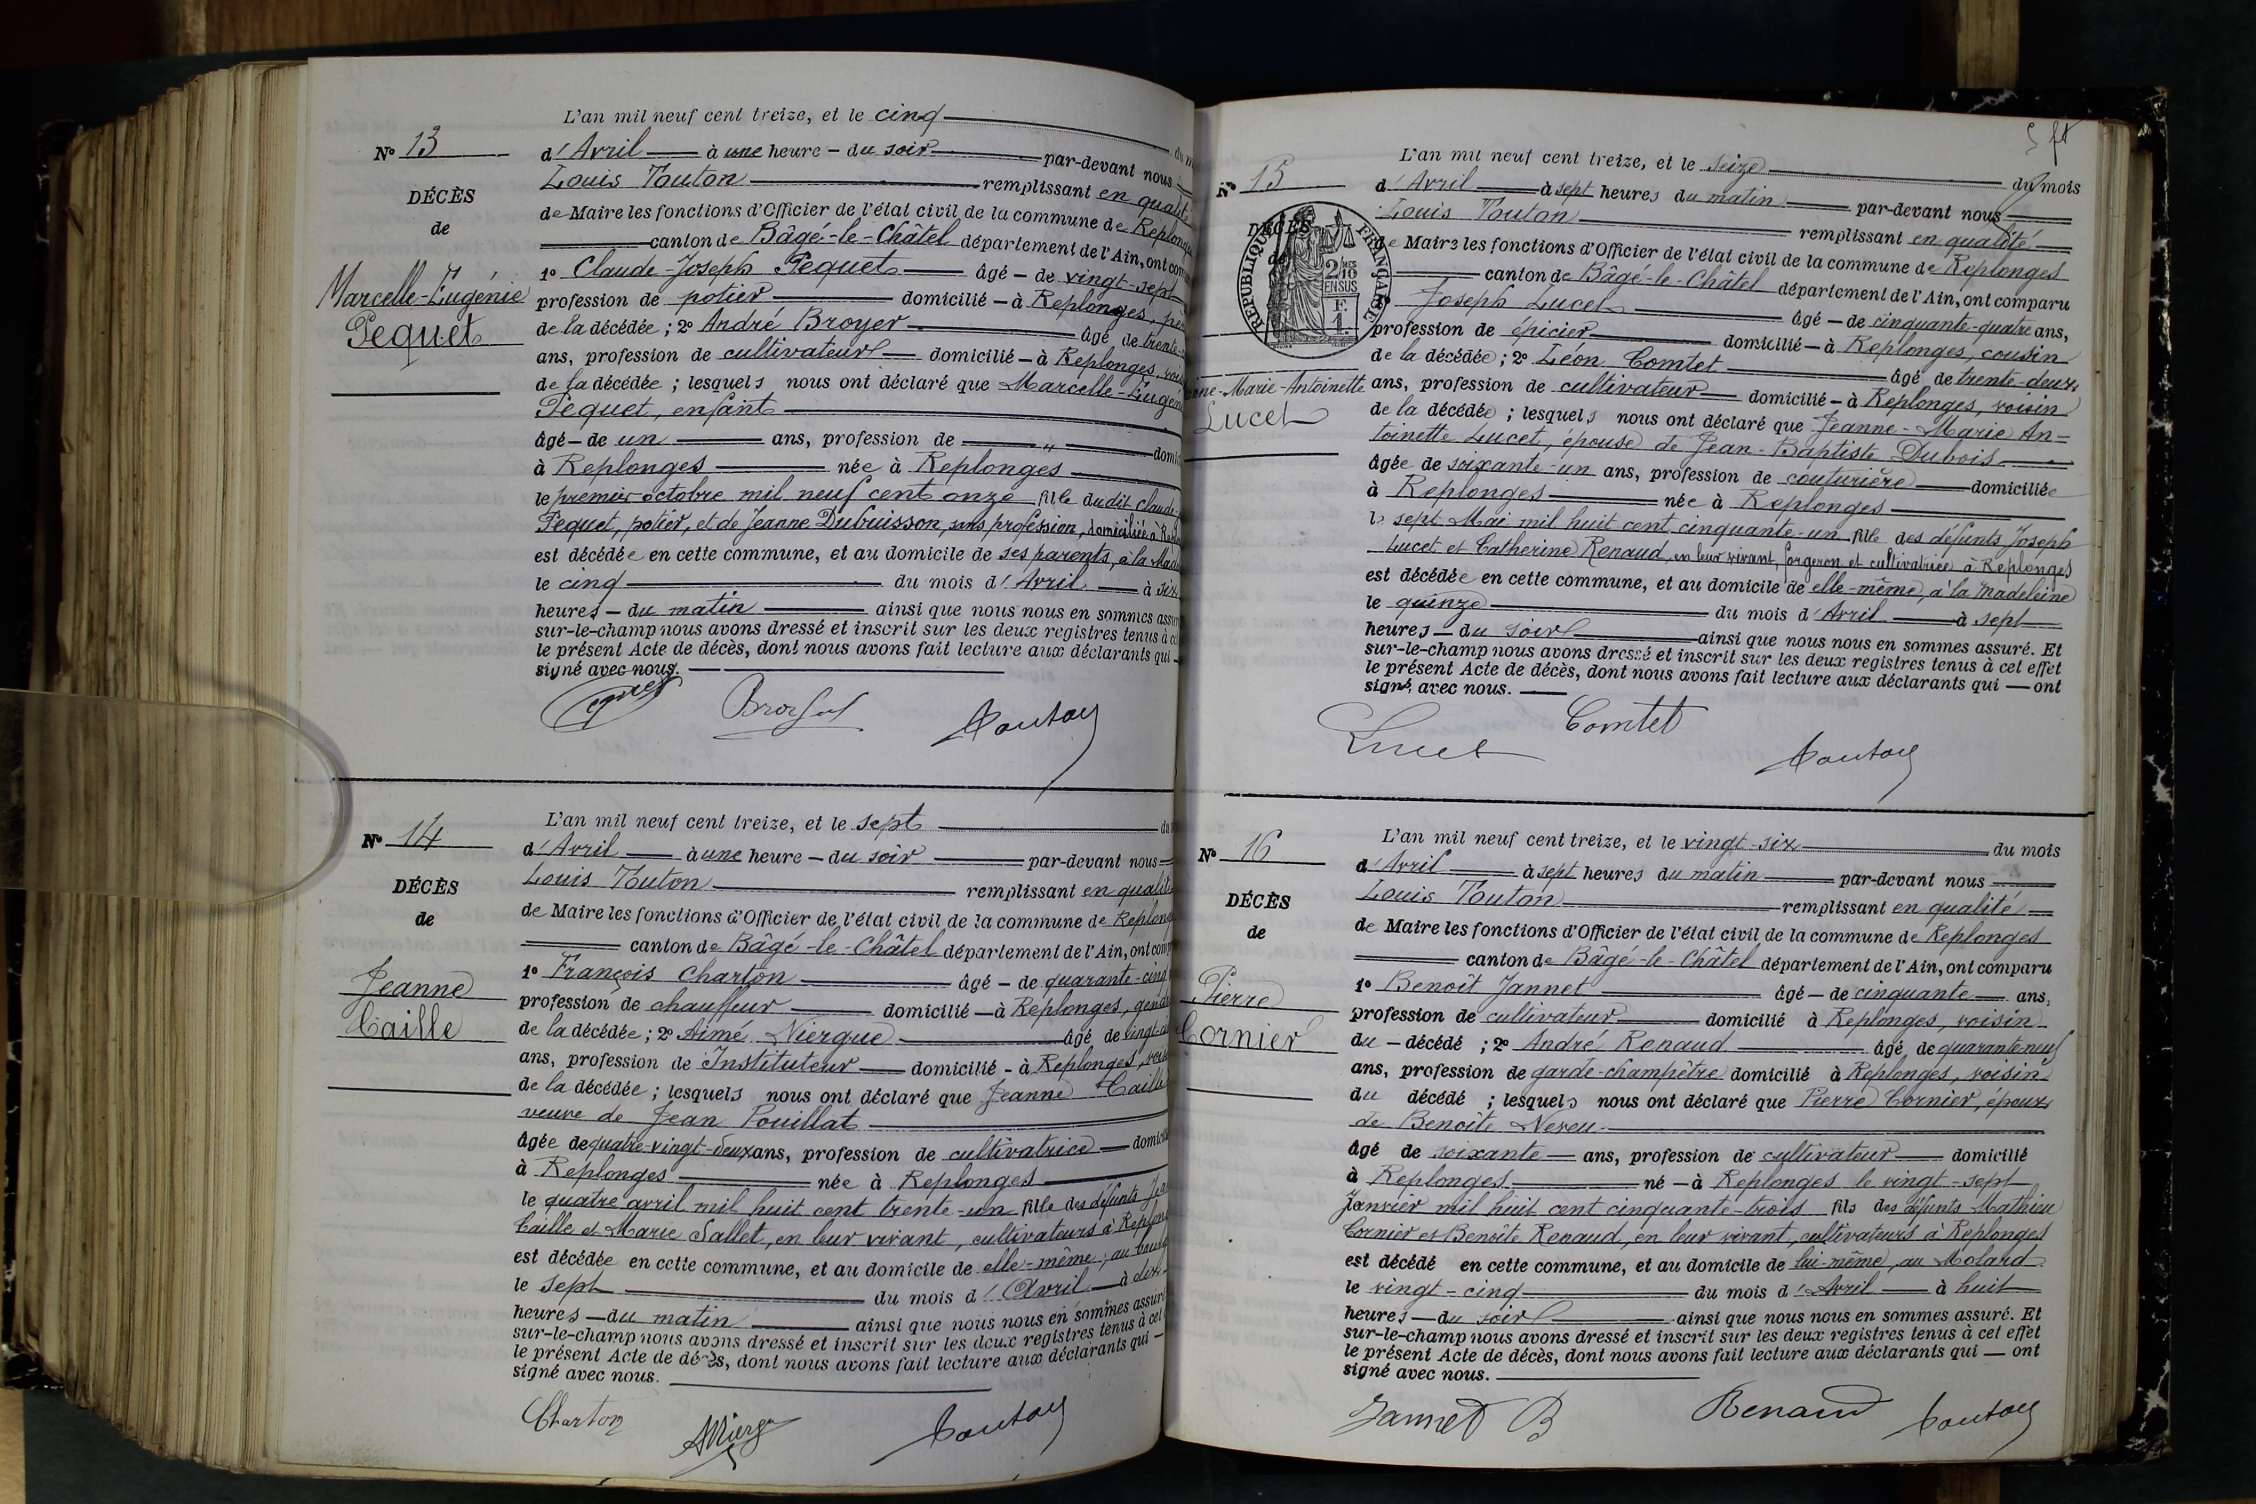 L'an mil neuf cent treize, et le cinq
N° 13
d'Avril à une heure du soir par-devant nous
Louis Touton remplissant en qualité
DÉCÈS
de Maire les fonctions d'Officier de l'état civil de la commune de Replonges
de
canton de Bâgé-le-Châtel département de l'Ain, ont com
Marcelle-Eugénie
Pequet
1° Claude-Joseph Pequet âgé de vingt-sept
profession de potier domicilié à Replonges, père
de la décédée ; 2° André Broyer âgé de trente
ans, profession de cultivateur domicilié à Replonges, voi
de la décédée ; lesquels nous ont déclaré que Marcelle-Eugénie
Pequet, enfant
âgé de un ans, profession de " domic
à Replonges née à Replonges
le premier octobre mil neuf cent onze fille dudit Claude
Pequet, potier, et de Jeanne Dubuisson, sans profession, domiciliée à Replo
est décédée en cette commune, et au domicile de ses parents, à la Made
le cinq du mois d'Avril à six
heures du matin ainsi que nous nous en sommes assuré
sur-le-champ nous avons dressé et inscrit sur les deux registres tenus à cet
le présent Acte de décès, dont nous avons fait lecture aux déclarants qui
signé avec nous.
Touton
L'an mil neuf cent treize, et le sept du
N° 14
d'Avril à une heure du soir par-devant nous
Louis Touton remplissant en qualité
DÉCÈS
de Maire les fonctions d'Officier de l'état civil de la commune de Replong
de
canton de Bâgé-le-Châtel département de l'Ain, ont comp
Jeanne
Caille
1° François Charton âgé de quarante-cinq
profession de chauffeur domicilié à Replonges, gendre
de la décédée ; 2° Aimé Niergue âgé de vingt
ans, profession de Instituteur domicilié à Replonges, voisin
de la décédée ; lesquels nous ont déclaré que Jeanne Caille
veuve de Jean Pouillat
âgée de quatre-vingt-deux ans, profession de cultivatrice domicilié
à Replonges née à Replonges
le quatre avril mil huit cent trente-un fille des défunts Jean
Caille et Marie Sallet, en leur vivant, cultivateurs à Replong
est décédée en cette commune, et au domicile de elle-même, au bourg
le sept du mois d'Avril à dix
heures du matin ainsi que nous nous en sommes assuré
sur-le-champ nous avons dressé et inscrit sur les deux registres tenus à cet
le présent Acte de décès, dont nous avons fait lecture aux déclarants qui
signé avec nous.
Charton ANierg Touton
L'an mil neuf cent treize, et le seize du mois
N° 15
d'Avril à sept heures du matin par-devant nous
Louis Touton remplissant en qualité
DÉCÈS
de Maire les fonctions d'Officier de l'état civil de la commune de Replonges
de
RÉPUBLIQUE FRANÇAISE
2/10 MES
EN SUS
F.
1.
canton de Bâgé-le-Châtel département de l'Ain, ont comparu
Joseph Lucet âgé de cinquante-quatre ans,
profession de épicier domicilié à Replonges, cousin
de la décédée ; 2° Léon Comtet âgé de trente-deux
nne-Marie-Antoinette
Lucet
ans, profession de cultivateur domicilié à Replonges, voisin
de la décédée ; lesquels nous ont déclaré que Jeanne-Marie An=
toinette Lucet, épouse de Jean-Baptiste Dubois
âgée de soixante-un ans, profession de couturière domiciliée
à Replonges née à Replonges
le sept Mai mil huit cent cinquante-un fille des défunts Joseph
Lucet et Catherine Renaud, en leur vivant, forgeron et cultivatrice à Replonges
est décédée en cette commune, et au domicile de elle-même, à la Madeleine
le quinze du mois d'Avril à sept
heures du soir ainsi que nous nous en sommes assuré. Et
sur-le-champ nous avons dressé et inscrit sur les deux registres tenus à cet effet
le présent Acte de décès, dont nous avons fait lecture aux déclarants qui ont
signé avec nous.
Lucet Comtet Touton
L'an mil neuf cent treize, et le vingt-six du mois
N° 16
d'Avril à sept heures du matin par-devant nous
Louis Touton remplissant en qualité
DÉCÈS
de Maire les fonctions d'Officier de l'état civil de la commune de Replonges
de
canton de Bâgé-le-Châtel département de l'Ain, ont comparu
Pierre
Cornier
1° Benoît Jannet âgé de cinquante ans,
profession de cultivateur domicilié à Replonges, voisin
du décédé ; 2° André Renaud âgé de quarante-neuf
ans, profession de garde-champêtre domicilié à Replonges, voisin
du décédé ; lesquels nous ont déclaré que Pierre Cornier, époux
de Benoîte Neveu
âgé de soixante ans, profession de cultivateur domicilié
à Replonges né à Replonges le vingt-sept
Janvier mil huit cent cinquante-trois fils des défunts Mathieu
Cornier et Benoîte Renaud, en leur vivant, cultivateurs à Replonges
est décédé en cette commune, et au domicile de lui-même, au Molard
le vingt-cinq du mois d'Avril à huit
heures du soir ainsi que nous nous en sommes assuré. Et
sur-le-champ nous avons dressé et inscrit sur les deux registres tenus à cet effet
le présent Acte de décès, dont nous avons fait lecture aux déclarants qui ont
signé avec nous.
Jannet B Renaud Touton